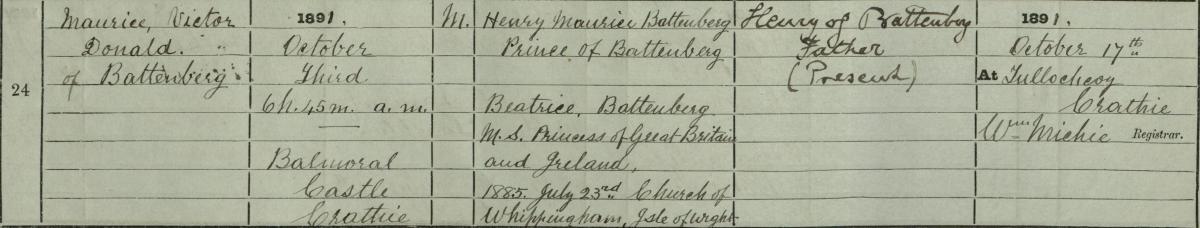 24
Maurice, Victor
Donald. "
of Battenberg
1891.
October
Third
6h. 45m. a.m.
Balmoral
Castle
Crathie
M.
Henry Maurice Battenberg
Prince of Battenberg
Beatrice, Battenberg
M.S. Princess of Great Britain
and Ireland,
1885. July 23rd Church of
Whippingham, Isle of Wight
Henry of Battenberg
Father
(Present)
1891.
October 17th
At Tullochcoy
Crathie
Wm Michie Registrar.